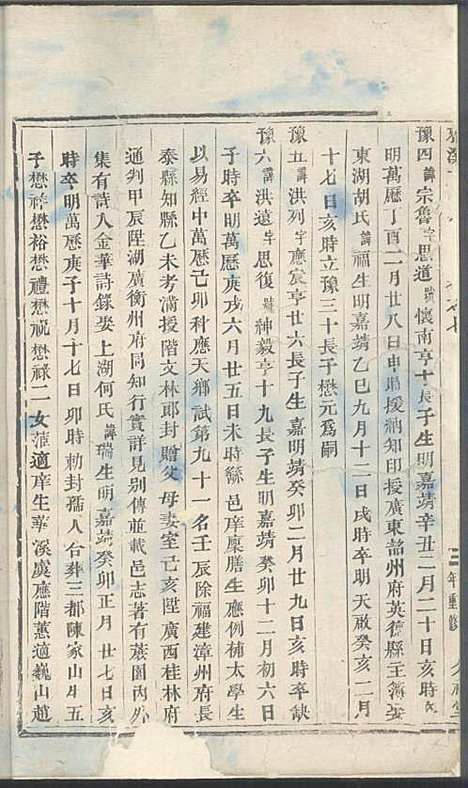 豫四諱宗魯字思道號懷南亨十長子生明嘉靖辛丑二月二十日亥時
明萬歷丁酉二月廿八日申時援納知印授廣東韶州府英德縣主簿娶
東湖胡氏諱福生明嘉靖乙巳九月十二日戌時卒明天啟癸亥二月
十七日亥時立豫三十長子懋元爲嗣
豫五諱洪列字應宸亨廿六長子生嘉明靖癸卯二月廿九日亥時卒缺
豫六諱洪遠字思復號紳毅亨十九長子生明嘉靖癸卯二月初六日
子時卒明萬歷庚戌六月廿五日未時縣邑庠廩膳生應例補太學生
以易經中萬歷己卯科應天鄉試第九十一名壬辰除福建漳州府長
泰縣知縣乙未考滿援階文林郎封贈父母妻室己亥陞廣西桂林府
通判甲辰陞湖廣衡州府同知行實詳見别傳並載邑志著有菉園内外
集有詩入金華詩錄娶上湖何氏諱瑞生明嘉靖癸卯正月廿七日亥
時卒明萬歷庚子十月十七日卯時勅封孺人合葬三都陳家山生五
子懋祥懋裕懋禮懋祝懋祿二女萍適庠生華溪虞應階蕙適巍山趙